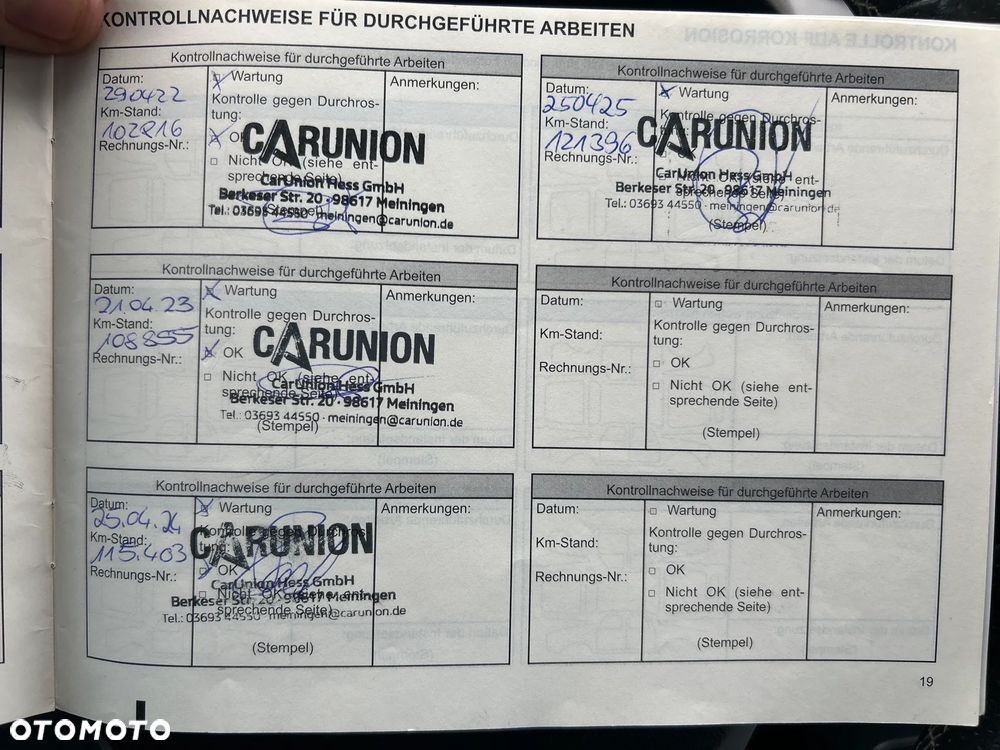 KONTROLLNACHWEISE FÜR DURCHGEFÜHRTE ARBEITEN
KONTROLLE AUF KORROSION
Kontrollnachweise für durchgeführte Arbeiten
Datum:
290422
Km-Stand:
102816
Rechnungs-Nr.:
Wartung
Kontrolle gegen Durchros-
tung:
OK
Nicht OK (siehe ent-
sprechende Seite)
(Stempel)
Anmerkungen:
CARUNION
CarUnion Hess GmbH
Berkeser Str. 20 · 98617 Meiningen
Tel.: 03693 44550 · meiningen@carunion.de
Kontrollnachweise für durchgeführte Arbeiten
Datum:
21.04.23
Km-Stand:
108855
Rechnungs-Nr.:
Wartung
Kontrolle gegen Durchros-
tung:
OK
Nicht OK (siehe ent-
sprechende Seite)
(Stempel)
Anmerkungen:
CARUNION
CarUnion Hess GmbH
Berkeser Str. 20 · 98617 Meiningen
Tel.: 03693 44550 · meiningen@carunion.de
Kontrollnachweise für durchgeführte Arbeiten
Datum:
25.04.24
Km-Stand:
115.403
Rechnungs-Nr.:
Wartung
Kontrolle gegen Durchros-
tung:
OK
Nicht OK (siehe ent-
sprechende Seite)
(Stempel)
Anmerkungen:
CARUNION
CarUnion Hess GmbH
Berkeser Str. 20 · 98617 Meiningen
Tel.: 03693 44550 · meiningen@carunion.de
Kontrollnachweise für durchgeführte Arbeiten
Datum:
250425
Km-Stand:
121396
Rechnungs-Nr.:
Wartung
Kontrolle gegen Durchros-
Nicht OK (siehe ent-
sprechende Seite)
(Stempel)
Anmerkungen:
CARUNION
CarUnion Hess GmbH
Berkeser Str. 20 · 98617 Meiningen
Tel.: 03693 44550 · meiningen@carunion.de
Kontrollnachweise für durchgeführte Arbeiten
Datum:
Km-Stand:
Rechnungs-Nr.:
Wartung
Kontrolle gegen Durchros-
tung:
OK
Nicht OK (siehe ent-
sprechende Seite)
(Stempel)
Anmerkungen:
Kontrollnachweise für durchgeführte Arbeiten
Datum:
Km-Stand:
Rechnungs-Nr.:
Wartung
Kontrolle gegen Durchros-
tung:
OK
Nicht OK (siehe ent-
sprechende Seite)
(Stempel)
Anmerkungen:
19
OTOMOTO